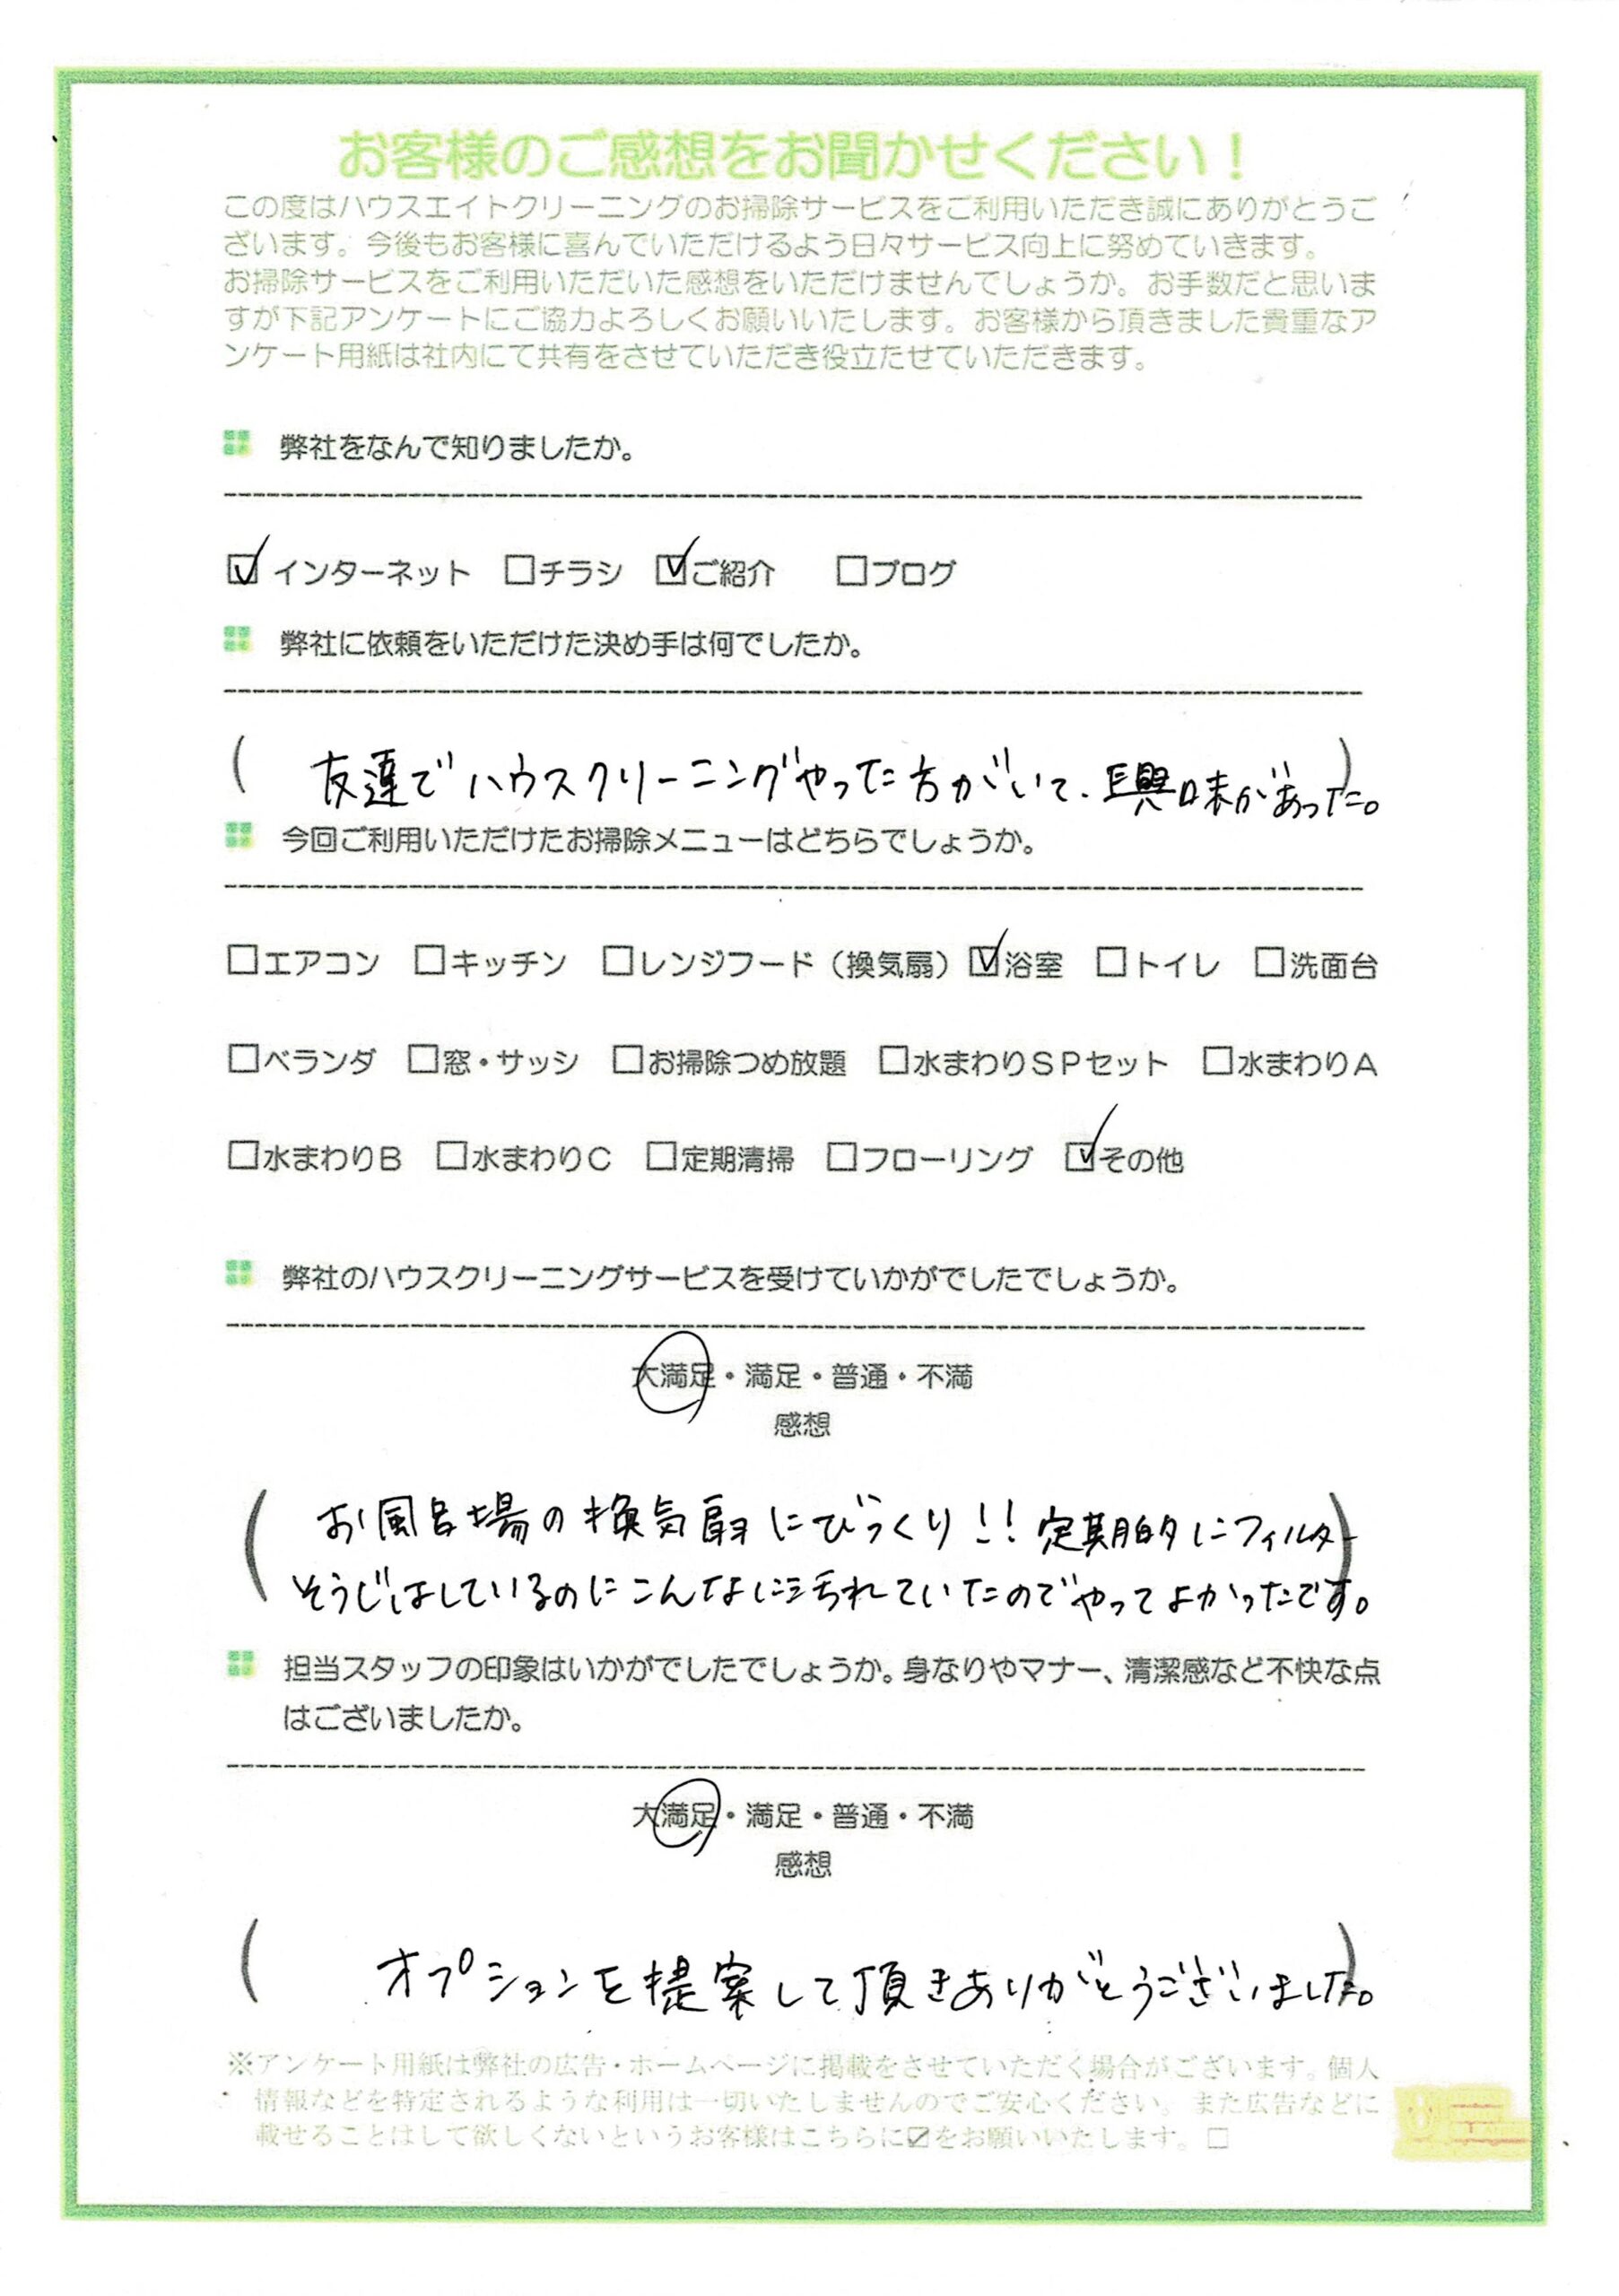 お客様のご感想をお聞かせください！
この度はハウスエイトクリーニングのお掃除サービスをご利用いただき誠にありがとうご
ざいます。今後もお客様に喜んでいただけるよう日々サービス向上に努めていきます。
お掃除サービスをご利用いただいた感想をいただけませんでしょうか。お手数だと思いま
すが下記アンケートにご協力よろしくお願いいたします。お客様から頂きました貴重なア
ンケート用紙は社内にて共有をさせていただき役立たせていただきます。
弊社をなんで知りましたか。
☑インターネット □チラシ ☑ご紹介 □ブログ
弊社に依頼をいただけた決め手は何でしたか。
（友達でハウスクリーニングやった方がいて、興味があった。）
今回ご利用いただけたお掃除メニューはどちらでしょうか。
□エアコン □キッチン □レンジフード（換気扇） ☑浴室 □トイレ □洗面台
□ベランダ □窓・サッシ □お掃除つめ放題 □水まわりＳＰセット □水まわりＡ
□水まわりＢ □水まわりＣ □定期清掃 □フローリング ☑その他
弊社のハウスクリーニングサービスを受けていかがでしたでしょうか。
大満足・満足・普通・不満
感想
（お風呂場の換気扇にびっくり！！定期的にフィルター
そうじはしているのにこんなに汚れていたのでやってよかったです。）
担当スタッフの印象はいかがでしたでしょうか。身なりやマナー、清潔感など不快な点
はございましたか。
大満足・満足・普通・不満
感想
（オプションを提案して頂きありがとうございました。）
※アンケート用紙は弊社の広告・ホームページに掲載をさせていただく場合がございます。個人
情報などを特定されるような利用は一切いたしませんのでご安心ください。また広告などに
載せることはして欲しくないというお客様はこちらに☑をお願いいたします。□